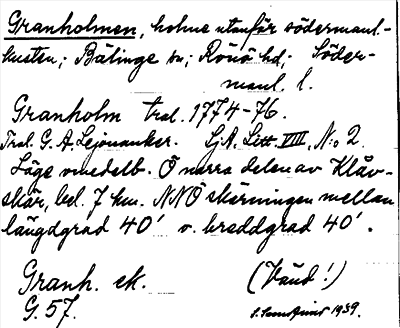 Granholmen, holme utanför södermanl.-
kusten; Bälinge sn; Rönö hd; Söder-
manl. l.
Granholm tral. 1774-76.
Tral. G. A. Lejonanker. SjA. Litt. VIII, N:o 2.
Läge omedelb. Ö norra delen av Klåv-
skär, bel. 7 km. NNÖ skärningen mellan
längdgrad 40' o. breddgrad 40'.
Granh. ek.
(Vänd!)
G. 57.
1939.